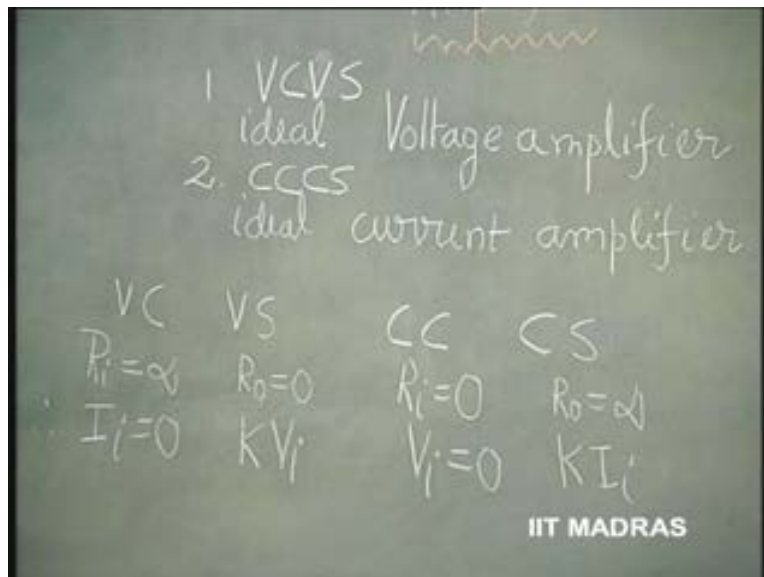 1 VCVS
ideal Voltage amplifier
2. CCCS
ideal current amplifier
VC VS CC CS
Ri=α R0=0 Ri=0 R0=α
∴ Ii=0 KVi Vi=0 KIi
IIT MADRAS